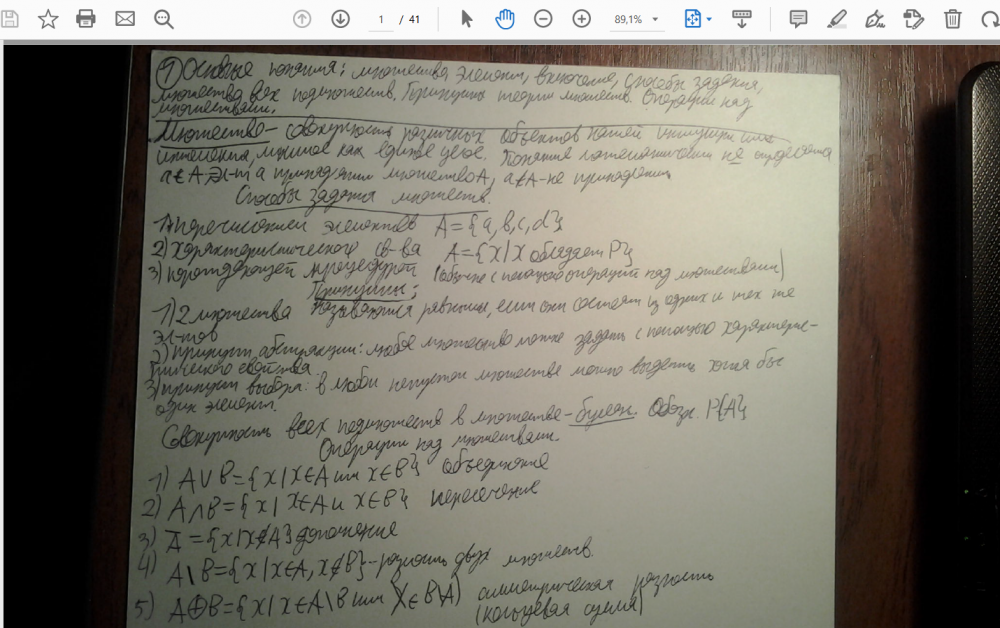 1 / 41
89,1%
① Основные понятия: множества, элемент, включение, способы задания,
множество всех подмножеств. Принципы теории множеств. Операции над
множествами.
Множество - совокупность различных объектов нашей интуиции или
интеллекта, мыслимое как единое целое. Понятие математически не определяется
a∈A эл-т a принадлежит множеству A, a∉A - не принадлежит
Способы задания множеств.
1) перечислением элементов A={a,b,c,d}
2) характеристического св-ва A={x|x обладает P}
3) порождающей процедурой (обычно с помощью операций над множествами)
Принципы:
1) 2 множества называются равными, если они состоят из одних и тех же
эл-тов
2) принцип абстракции: любое множество можно задать с помощью характерис-
тического свойства
3) принцип выбора: в любом непустом множестве можно выделить хотя бы
один элемент.
Совокупность всех подмножеств в множестве - булеан. Обозн. P{A}
Операции над множествами.
1) A∪B={x|x∈A или x∈B} объединение
2) A∩B={x|x∈A и x∈B} пересечение
3) A̅={x|x∉A} дополнение
4) A\B={x|x∈A, x∉B} - разность двух множеств.
5) A⊕B={x|x∈A\B или x∈B\A} симметрическая разность
(кольцевая сумма)